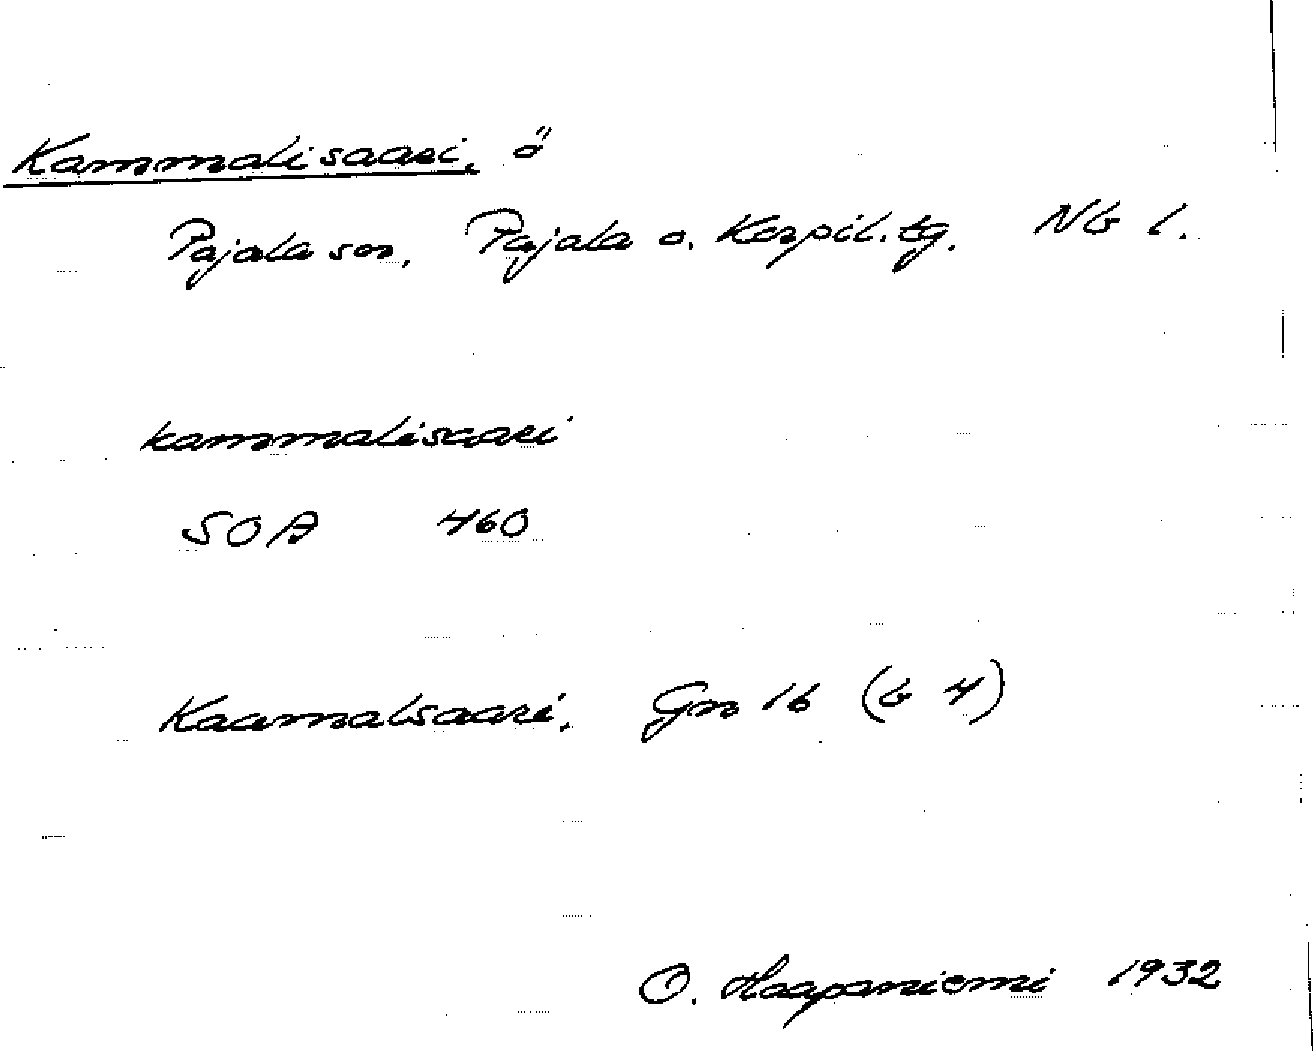 Kammalisaari, ö
Pajala sn, Pajala o. Korpil. tg. Nb l.
kammalisaari
SOA 460
Kaamalisaari. Gn 16 (b 4)
O. Haapaniemi 1932